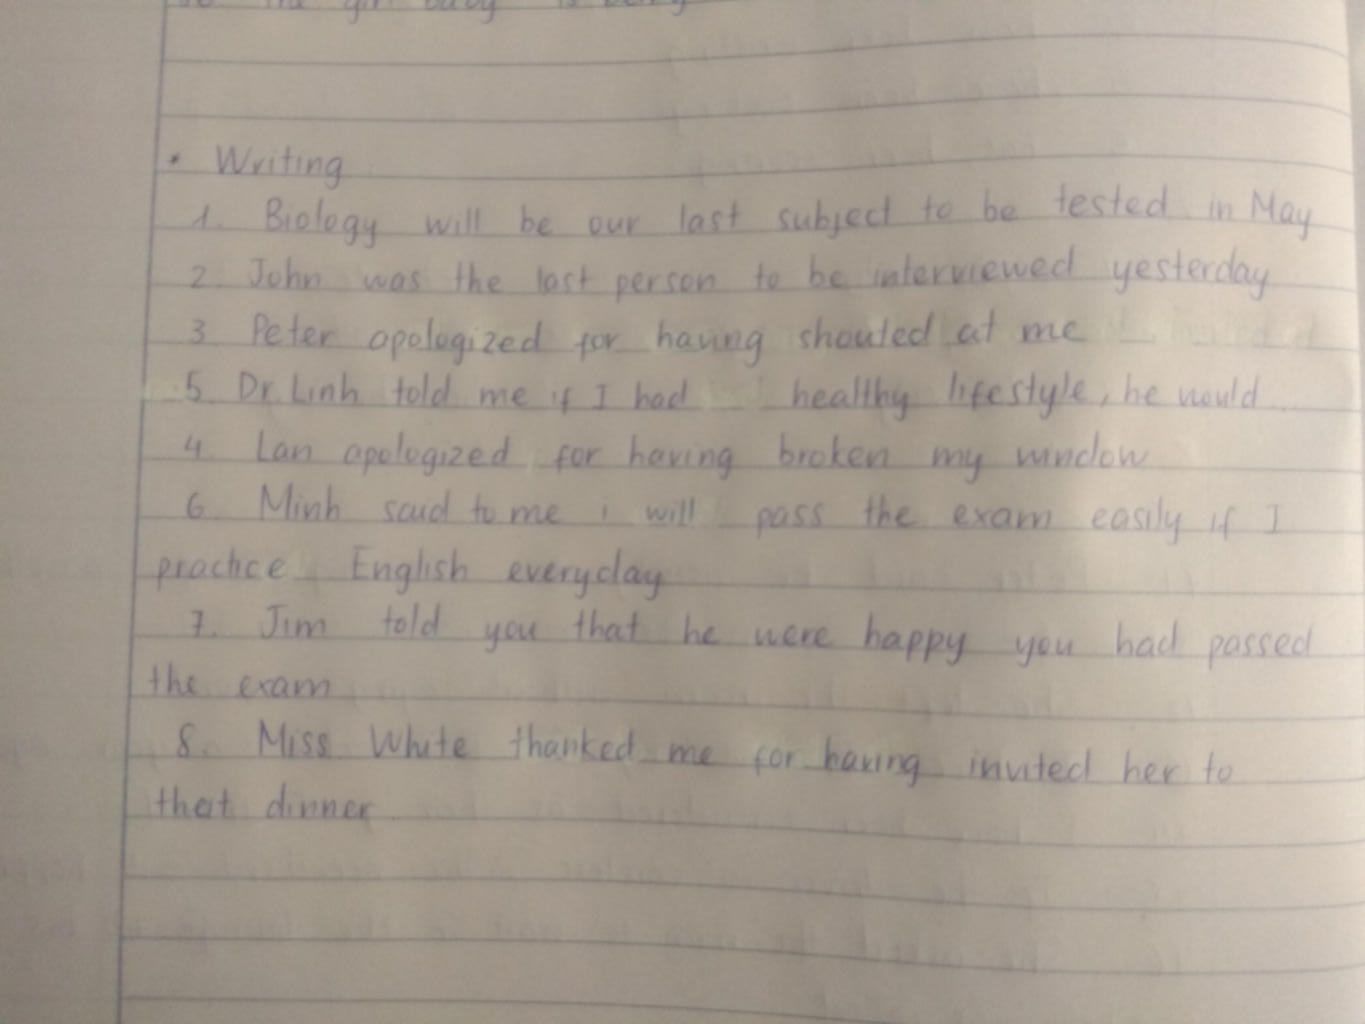 the girl baby is being
* Writing
1. Biology will be our last subject to be tested in May
2. John was the last person to be interviewed yesterday
3 Peter apologized for having shouted at me
5. Dr. Linh told me if I had healthy lifestyle, he would
4. Lan apologized for having broken my window
6. Minh said to me i will pass the exam easily if I
practice English everyday
7. Jim told you that he were happy you had passed
the exam
8. Miss White thanked me for having invited her to
that dinner